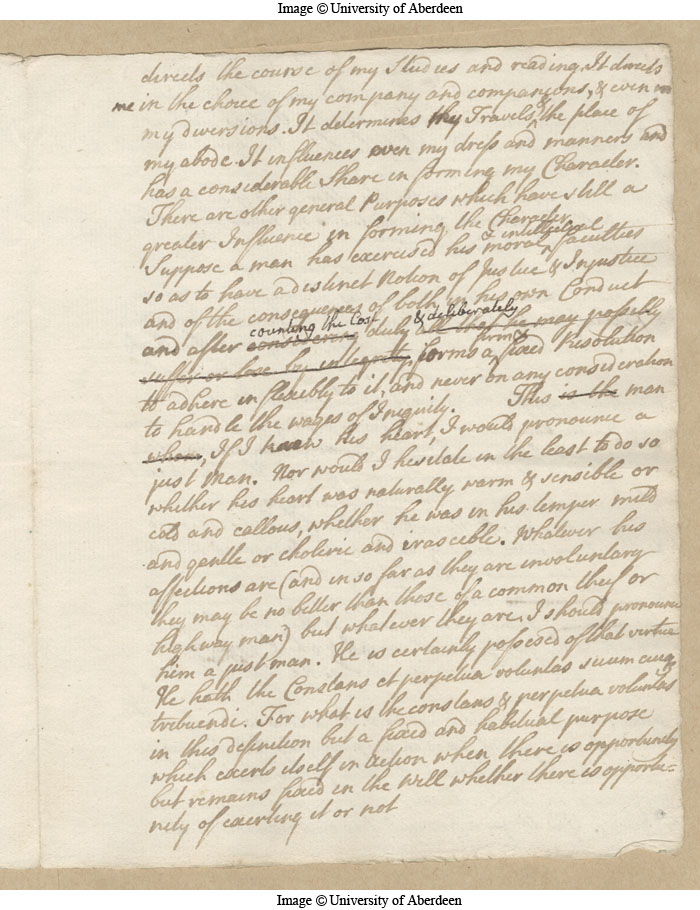 Image © University of Aberdeen
directs the course of my Studies and reading. It directs
me in the choice of my company and companions, & even in
my diversions. It determines my Travels, & the place of
my abode. It influences even my dress and manners and
has a considerable Share in forming my Character.
There are other general Purposes which have still a
greater Influence in forming the Character.
Suppose a man has exercised his moral & intellectual faculties
so as to have a distinct Notion of Justice & Injustice
and of the consequences of both in his own Conduct
and after considering counting the Cost duly & deliberately all that he may possibly
suffer or lose by integrity, forms a firm & fixed Resolution
to adhere inflexibly to it, and never on any consideration
to handle the wages of Iniquity. This is the man
whom, If I knew his heart, I would pronounce a
just Man. Nor would I hesitate in the least to do so
whether his heart was naturally warm & sensible or
cold and callous, whether he was in his temper mild
and gentle or choleric and irasceble. Whatever his
affections are (and in so far as they are involuntary
they may be no better than those of a common thief or
highway man) but whatever they are, I should pronounce
him a just man. He is certainly possesed of that virtue
He hath the Constans et perpetua voluntas suum cuiq
tribuendi. For what is the constans & perpetua voluntas
in this definition but a fixed and habitual purpose
which exerts itself in action when there is opportunity
but remains fixed in the will whether there is opportu=
nity of exerting it or not
Image © University of Aberdeen